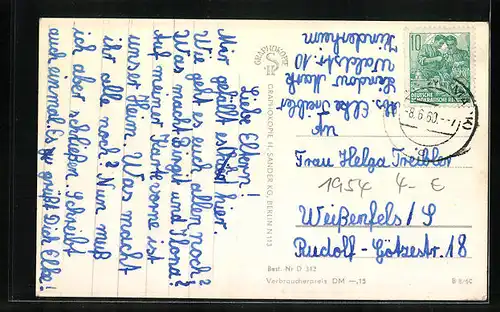 Liebe Eltern!
Mir gefällt es hier.
Wie geht es euch allen noch?
Was macht Birgit und Ilona?
Auf meiner Karte vorne ist
unser Heim. Was macht
ihr alle noch? Nun muß
ich aber schließen. Schreibt
auch einmal. Es grüßt Dich Elke!
GRAPHOKOPIE
GRAPHOKOPIE H. SANDER KG, BERLIN N 113
Abs. Elke Treibler
Waldstr. 10
Kinderheim
10
DEUTSCHE
-8.6.60.-7
An
Frau Helga Treibler
1954 4- €
Weißenfels/S
Rudolf-Götzestr. 18
Best.-Nr D 382
Verbraucherpreis DM -,15